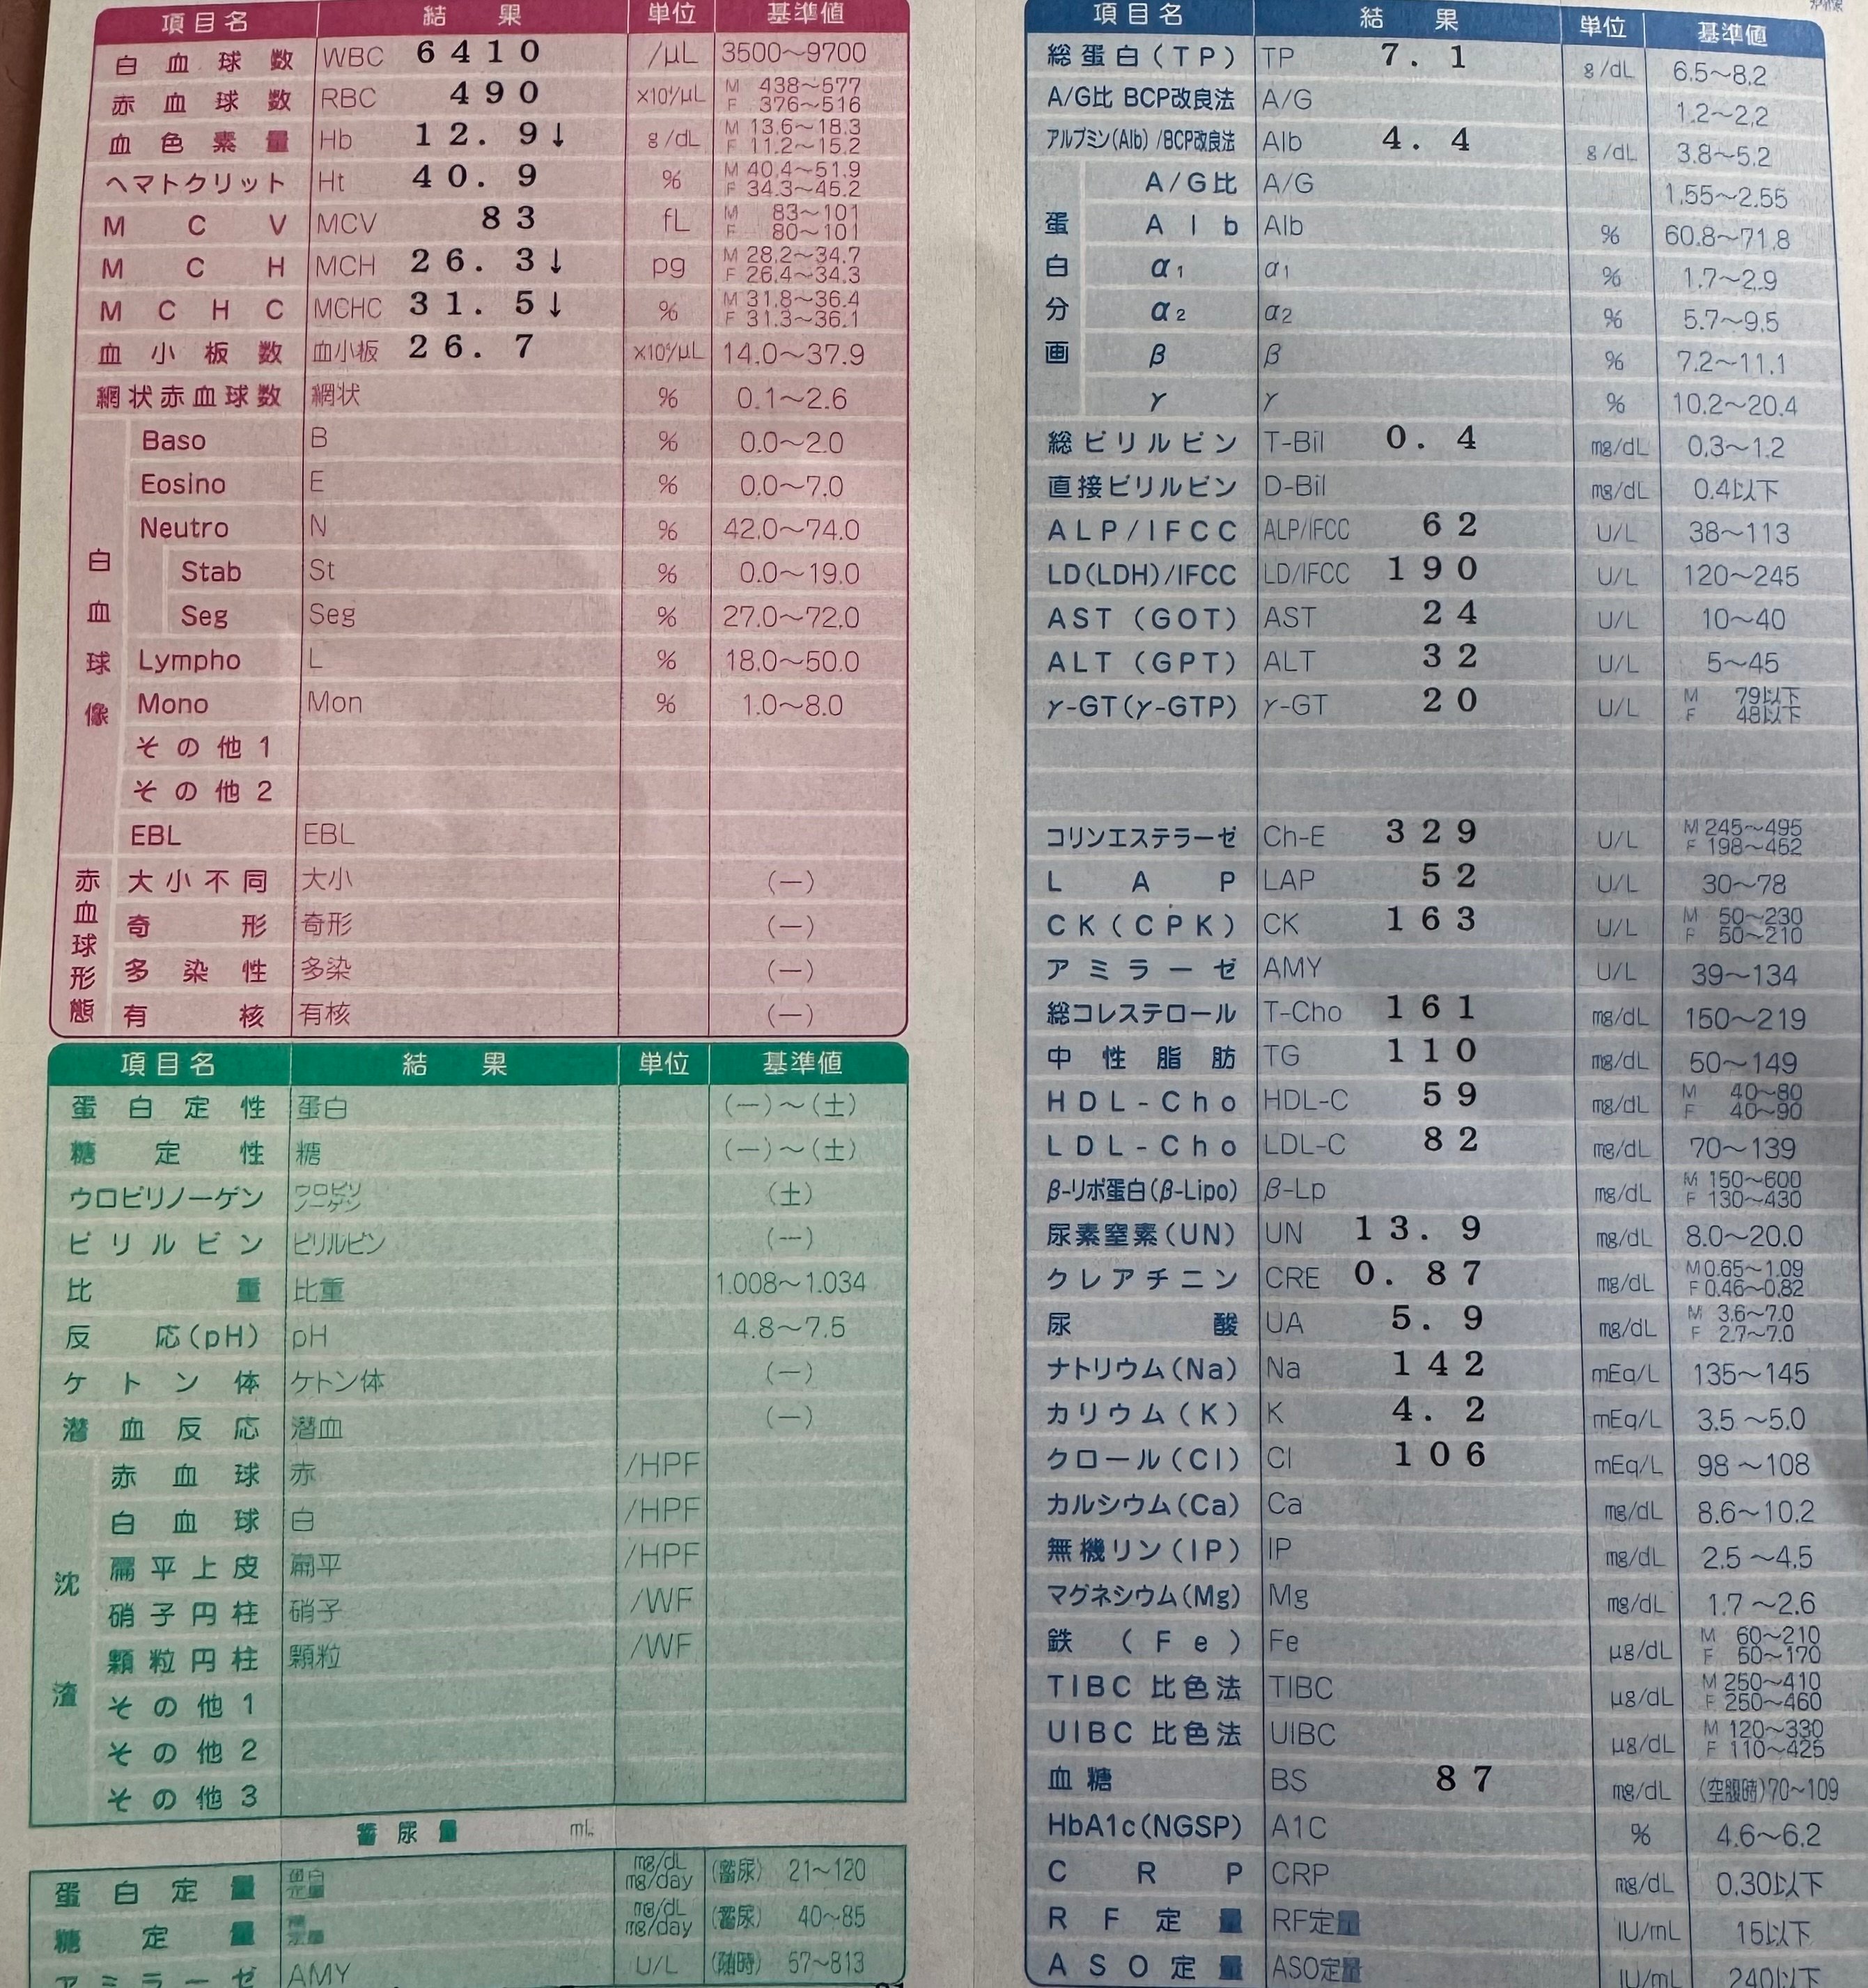 項目名 結果 単位 基準値
白血球数 WBC 6410 /μL 3500～9700
赤血球数 RBC 490 ×10⁴/μL M 438～577 F 376～516
血色素量 Hb 12.9↓ g/dL M 13.6～18.3 F 11.2～15.2
ヘマトクリット Ht 40.9 % M 40.4～51.9 F 34.3～45.2
MCV MCV 83 fL M 83～101 F 80～101
MCH MCH 26.3↓ pg M 28.2～34.7 F 26.4～34.3
MCHC MCHC 31.5↓ % M 31.8～36.4 F 31.3～36.1
血小板数 血小板 26.7 ×10⁴/μL 14.0～37.9
網状赤血球数 網状 % 0.1～2.6
白血球像
Baso B % 0.0～2.0
Eosino E % 0.0～7.0
Neutro N % 42.0～74.0
Stab St % 0.0～19.0
Seg Seg % 27.0～72.0
Lympho L % 18.0～50.0
Mono Mon % 1.0～8.0
その他1
その他2
EBL EBL
赤血球形態
大小不同 大小 (－)
奇形 奇形 (－)
多染性 多染 (－)
有核 有核 (－)
項目名 結果 単位 基準値
蛋白定性 蛋白 (－)～(±)
糖定性 糖 (－)～(±)
ウロビリノーゲン ウロビリノーゲン (±)
ビリルビン ビリルビン (－)
比重 比重 1.008～1.034
反応(pH) pH 4.8～7.5
ケトン体 ケトン体 (－)
潜血反応 潜血 (－)
沈渣
赤血球 赤 /HPF
白血球 白 /HPF
扁平上皮 扁平 /HPF
硝子円柱 硝子 /WF
顆粒円柱 顆粒 /WF
その他1
その他2
その他3
蓄尿量 mL
蛋白定量 蛋白定量 mg/dL mg/day (蓄尿) 21～120
糖定量 糖定量 mg/dL mg/day (蓄尿) 40～85
アミラーゼ AMY U/L (随時) 57～813
項目名 結果 単位 基準値
総蛋白(TP) TP 7.1 g/dL 6.5～8.2
A/G比 BCP改良法 A/G 1.2～2.2
アルブミン(Alb)/BCP改良法 Alb 4.4 g/dL 3.8～5.2
蛋白分画
A/G比 A/G 1.55～2.55
Alb Alb % 60.8～71.8
α1 α1 % 1.7～2.9
α2 α2 % 5.7～9.5
β β % 7.2～11.1
γ γ % 10.2～20.4
総ビリルビン T-Bil 0.4 mg/dL 0.3～1.2
直接ビリルビン D-Bil mg/dL 0.4以下
ALP/IFCC ALP/IFCC 62 U/L 38～113
LD(LDH)/IFCC LD/IFCC 190 U/L 120～245
AST(GOT) AST 24 U/L 10～40
ALT(GPT) ALT 32 U/L 5～45
γ-GT(γ-GTP) γ-GT 20 U/L M 79以下 F 48以下
コリンエステラーゼ Ch-E 329 U/L M 245～495 F 198～452
LAP LAP 52 U/L 30～78
CK(CPK) CK 163 U/L M 50～230 F 50～210
アミラーゼ AMY U/L 39～134
総コレステロール T-Cho 161 mg/dL 150～219
中性脂肪 TG 110 mg/dL 50～149
HDL-Cho HDL-C 59 mg/dL M 40～80 F 40～90
LDL-Cho LDL-C 82 mg/dL 70～139
β-リポ蛋白(β-Lipo) β-Lp mg/dL M 150～600 F 130～430
尿素窒素(UN) UN 13.9 mg/dL 8.0～20.0
クレアチニン CRE 0.87 mg/dL M 0.65～1.09 F 0.46～0.82
尿酸 UA 5.9 mg/dL M 3.6～7.0 F 2.7～7.0
ナトリウム(Na) Na 142 mEq/L 135～145
カリウム(K) K 4.2 mEq/L 3.5～5.0
クロール(Cl) Cl 106 mEq/L 98～108
カルシウム(Ca) Ca mg/dL 8.6～10.2
無機リン(IP) IP mg/dL 2.5～4.5
マグネシウム(Mg) Mg mg/dL 1.7～2.6
鉄(Fe) Fe μg/dL M 60～210 F 50～170
TIBC 比色法 TIBC μg/dL M 250～410 F 250～460
UIBC 比色法 UIBC μg/dL M 120～330 F 110～425
血糖 BS 87 mg/dL (空腹時)70～109
HbA1c(NGSP) A1C % 4.6～6.2
CRP CRP mg/dL 0.30以下
RF定量 RF定量 IU/mL 15以下
ASO定量 ASO定量 IU/mL 240以下